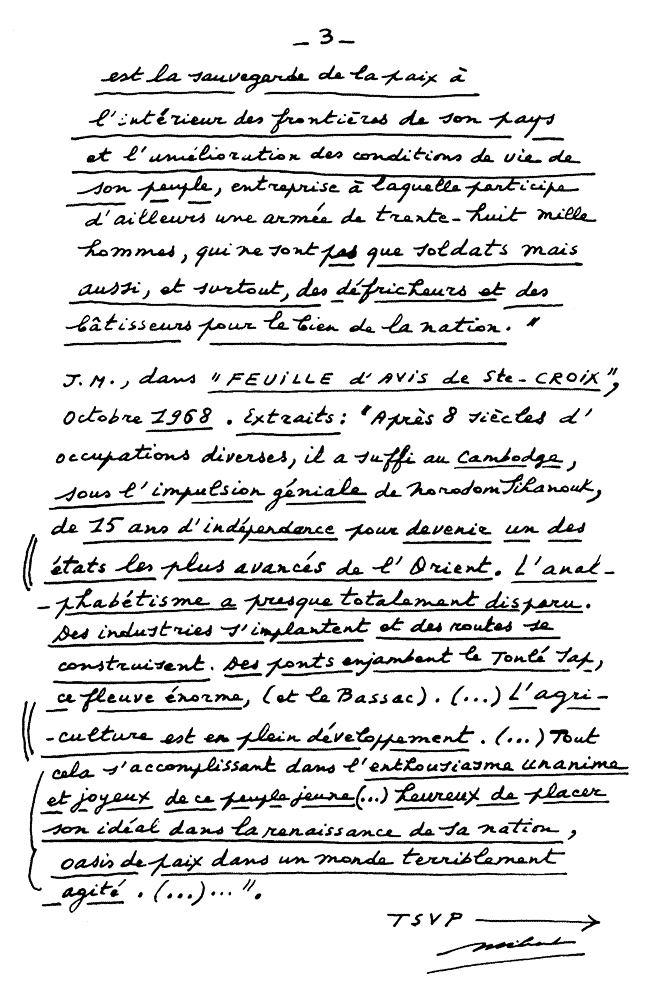 _ 3 _
est la sauvegarde de la paix à
l'intérieur des frontières de son pays
et l'amélioration des conditions de vie de
son peuple, entreprise à laquelle participe
d'ailleurs une armée de trente-huit mille
hommes, qui ne sont pas que soldats mais
aussi, et surtout, des défricheurs et des
bâtisseurs pour le bien de la nation. "
J.M., dans "FEUILLE d'AVIS de Ste-CROIX",
Octobre 1968. Extraits: "Après 8 siècles d'
occupations diverses, il a suffi au Cambodge,
sous l'impulsion géniale de Norodom Sihanouk,
de 15 ans d'indépendance pour devenir un des
états les plus avancés de l'Orient. L'anal-
-phabétisme a presque totalement disparu.
Des industries s'implantent et des routes se
construisent. Des ponts enjambent le Tonlé Sap,
ce fleuve énorme, (et le Bassac). (...) L'agri-
-culture est en plein développement. (...) Tout
cela s'accomplissant dans l'enthousiasme unanime
et joyeux de ce peuple jeune (...) heureux de placer
son idéal dans la renaissance de sa nation,
oasis de paix dans un monde terriblement
agité. (...)...".
TSVP